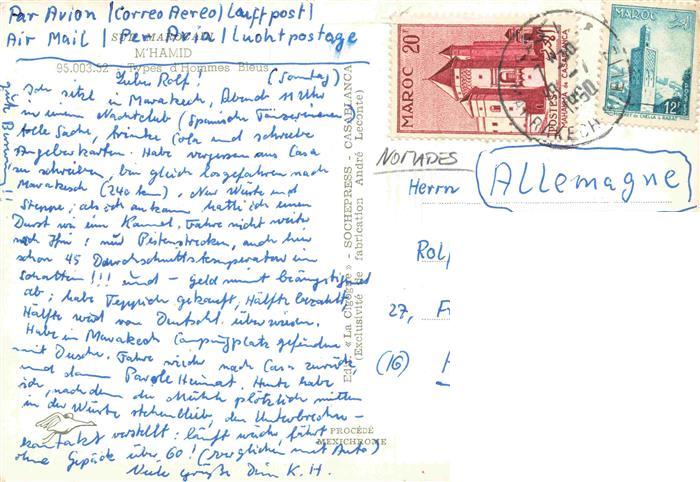 Par Avion | Correo Aereo | Luftpost |
Air Mail | Per Avia | Luchtpostage
M'HAMID
95.003.52 - Types d'Hommes Bleus
Lieber Rolf! (Sonntag)
Ich sitze in Marakech, Abend 11 Uhr
in einem Nachtclub (Spanische Tänzerinnen
tolle Sache, trinke Cola und schreibe
Angeberkarten. Habe vergessen aus Casa
zu schreiben, bin gleich losgefahren nach
Marakech (240 km). Nur Wüste und
Steppe; als ich ankam hatte ich einen
Durst wie ein Kamel. Fahre nicht weiter
nach Ifni! nur Pistenstrecken, auch hier
schon 45 Durchschnittstemperatur im
Schatten!!! und - Geld nimmt beängstigend
ab; habe Teppich gekauft, Hälfte bezahlt
Hälfte wird von Deutschl. überwiesen.
Habe in Marakech Campingplatz gefunden
mit Dusche. Fahre wieder nach Casa zurück,
und dann Parole Heimat. Heute habe
ich, nachdem die Mühle plötzlich mitten
in der Wüste stehenblieb, den Unterbrecher-
kontakt verstellt: läuft wieder, fährt
ohne Gepäck über 60! (verglichen mit Auto)
Viele Grüße Dein K. H.
PROCÉDÉ
MEXICHROME
Edit. «La Cigogne» - SOCHEPRESS - CASABLANCA
(Exclusivité de fabrication André Leconte)
MAROC 20F
POSTES
MAHAKMA DE CASABLANCA
MAROC
12F
MARRAKECH
NOMADES
Allemagne
Herrn
Rol
27, F
(16)